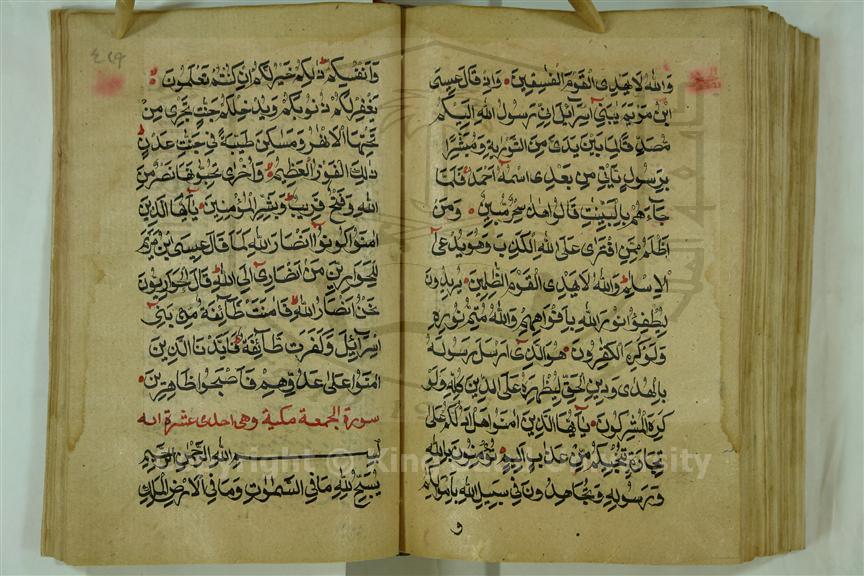 وَاللّٰهُ لَا يَهْدِى الْقَوْمَ الْفٰسِقِينَ وَاِذْ قَالَ عِيسَى
ابْنُ مَرْيَمَ يٰبَنِى اِسْرَآئِيلَ اِنِّى رَسُولُ اللّٰهِ اِلَيْكُمْ
مُصَدِّقًا لِمَا بَيْنَ يَدَىَّ مِنَ التَّوْرٰيةِ وَمُبَشِّرًا
بِرَسُولٍ يَأْتِى مِنْ بَعْدِى اسْمُهُ اَحْمَدُ فَلَمَّا
جَآءَهُمْ بِالْبَيِّنٰتِ قَالُوا هٰذَا سِحْرٌ مُبِينٌ وَمَنْ
اَظْلَمُ مِمَّنِ افْتَرٰى عَلَى اللّٰهِ الْكَذِبَ وَهُوَ يُدْعٰى
اِلَى الْاِسْلٰمِ وَاللّٰهُ لَا يَهْدِى الْقَوْمَ الظّٰلِمِينَ يُرِيدُونَ
لِيُطْفِؤُا نُورَ اللّٰهِ بِاَفْوَاهِهِمْ وَاللّٰهُ مُتِمُّ نُورِهِ
وَلَوْ كَرِهَ الْكٰفِرُونَ هُوَ الَّذِى اَرْسَلَ رَسُولَهُ
بِالْهُدٰى وَدِينِ الْحَقِّ لِيُظْهِرَهُ عَلَى الدِّينِ كُلِّهِ وَلَوْ
كَرِهَ الْمُشْرِكُونَ يٰاَيُّهَا الَّذِينَ اٰمَنُوا هَلْ اَدُلُّكُمْ عَلٰى
تِجَارَةٍ تُنْجِيكُمْ مِنْ عَذَابٍ اَلِيمٍ تُؤْمِنُونَ بِاللّٰهِ
وَرَسُولِهِ وَتُجَاهِدُونَ فِى سَبِيلِ اللّٰهِ بِاَمْوَالِكُمْ
و
وَاَنْفُسِكُمْ ذٰلِكُمْ خَيْرٌ لَكُمْ اِنْ كُنْتُمْ تَعْلَمُونَ
يَغْفِرْ لَكُمْ ذُنُوبَكُمْ وَيُدْخِلْكُمْ جَنّٰتٍ تَجْرِى مِنْ
تَحْتِهَا الْاَنْهٰرُ وَمَسٰكِنَ طَيِّبَةً فِى جَنّٰتِ عَدْنٍ
ذٰلِكَ الْفَوْزُ الْعَظِيمُ وَاُخْرٰى تُحِبُّونَهَا نَصْرٌ مِنَ
اللّٰهِ وَفَتْحٌ قَرِيبٌ وَبَشِّرِ الْمُؤْمِنِينَ يٰاَيُّهَا الَّذِينَ
اٰمَنُوا كُونُوا اَنْصَارَ اللّٰهِ كَمَا قَالَ عِيسَى ابْنُ مَرْيَمَ
لِلْحَوَارِيِّنَ مَنْ اَنْصَارِى اِلَى اللّٰهِ قَالَ الْحَوَارِيُّونَ
نَحْنُ اَنْصَارُ اللّٰهِ فَاٰمَنَتْ طَآئِفَةٌ مِنْ بَنِى
اِسْرَآئِيلَ وَكَفَرَتْ طَآئِفَةٌ فَاَيَّدْنَا الَّذِينَ
اٰمَنُوا عَلٰى عَدُوِّهِمْ فَاَصْبَحُوا ظَاهِرِينَ
سورة الجمعة مكية وهى احدى عشرة اية
بِسْمِ اللّٰهِ الرَّحْمٰنِ الرَّحِيمِ
يُسَبِّحُ لِلّٰهِ مَا فِى السَّمٰوَاتِ وَمَا فِى الْاَرْضِ الْمَلِكِ
Copyright © King Saud University